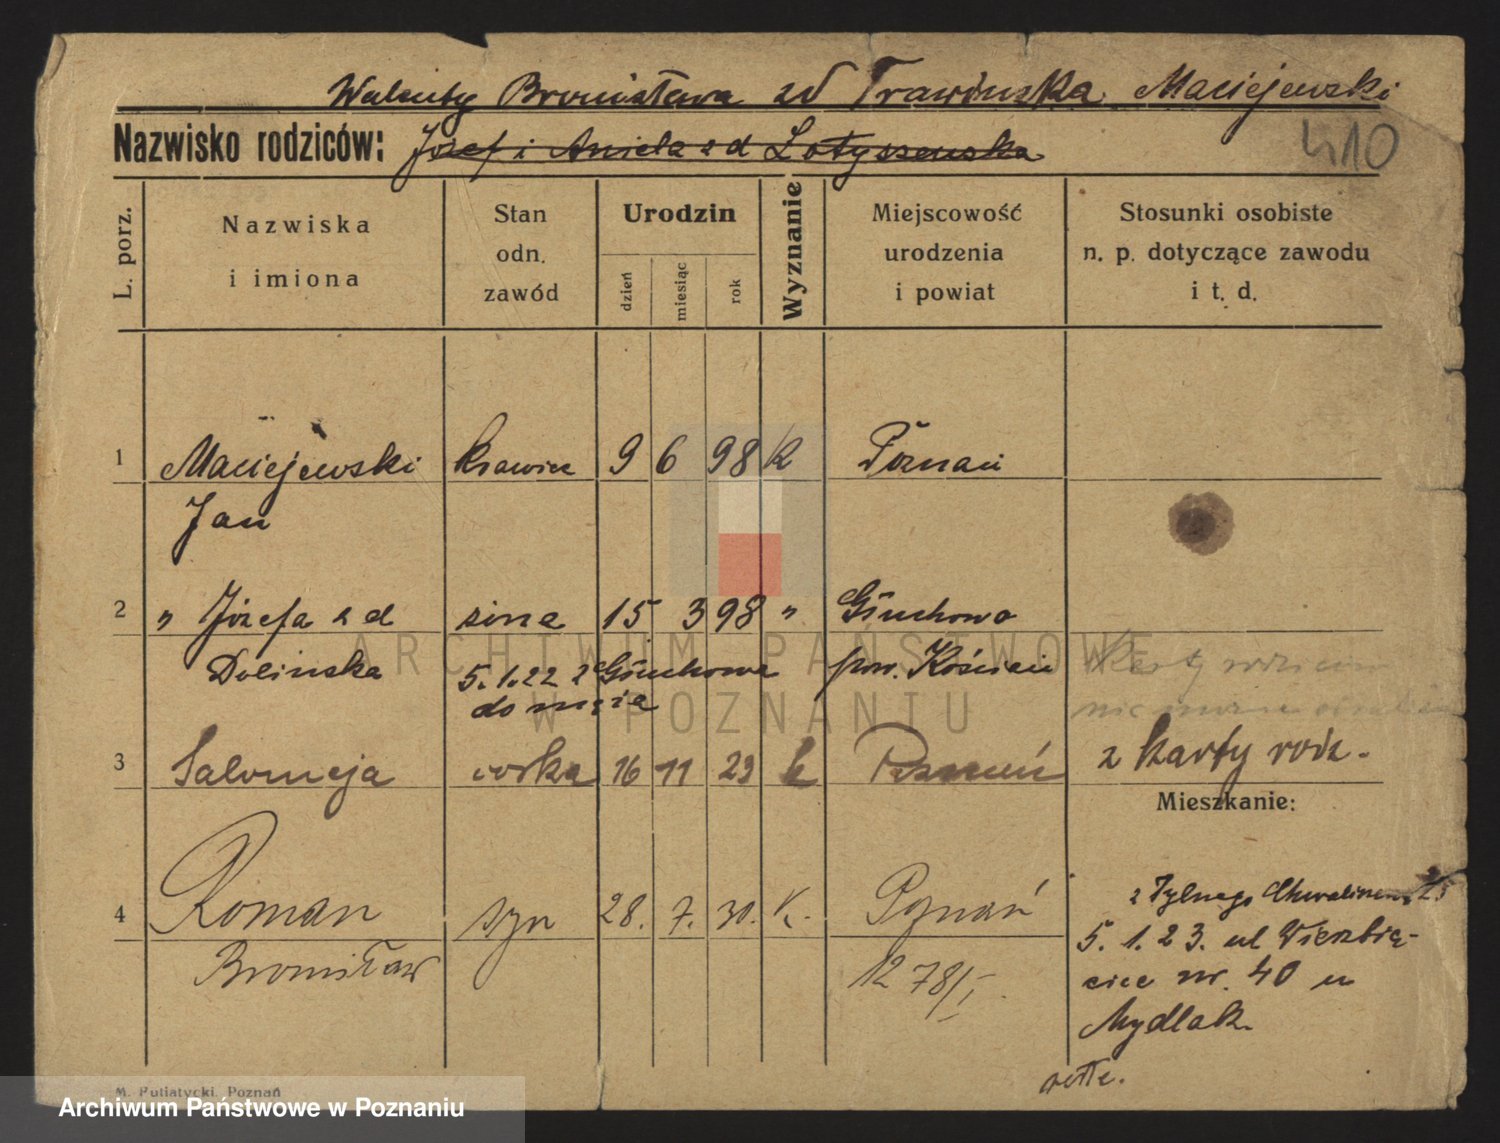 Walenty Bronisława zd Trawińska Maciejewski
Nazwisko rodziców: Józef i Aniela z d Lotyszewska
410
L. porz.
Nazwiska
i imiona
Stan
odn.
zawód
Urodzin
dzień
miesiąc
rok
Wyznanie
Miejscowość
urodzenia
i powiat
Stosunki osobiste
n. p. dotyczące zawodu
i t. d.
1 Maciejewski krawiec 9 6 98 k Poznań
Jan
2 „ Józefa z d żona 15 3 98 „ Głuchowo
Dolińska 5.1.22 z Głuchowa pow. Kościan
do męża
Karty
nic
3 Salomeja córka 16 11 23 k Poznań z karty rodz.
Mieszkanie:
4 Roman syn 28. 7. 30. K. Poznań
Bronisław
12 78/I
z Tylnego Chwaliszewa 25
5. 1. 23. ul Wierzbię-
cice nr. 40 u
Mydlak
M. Putiatycki, Poznań
ARCHIWUM PAŃSTWOWE
W POZNANIU
Archiwum Państwowe w Poznaniu